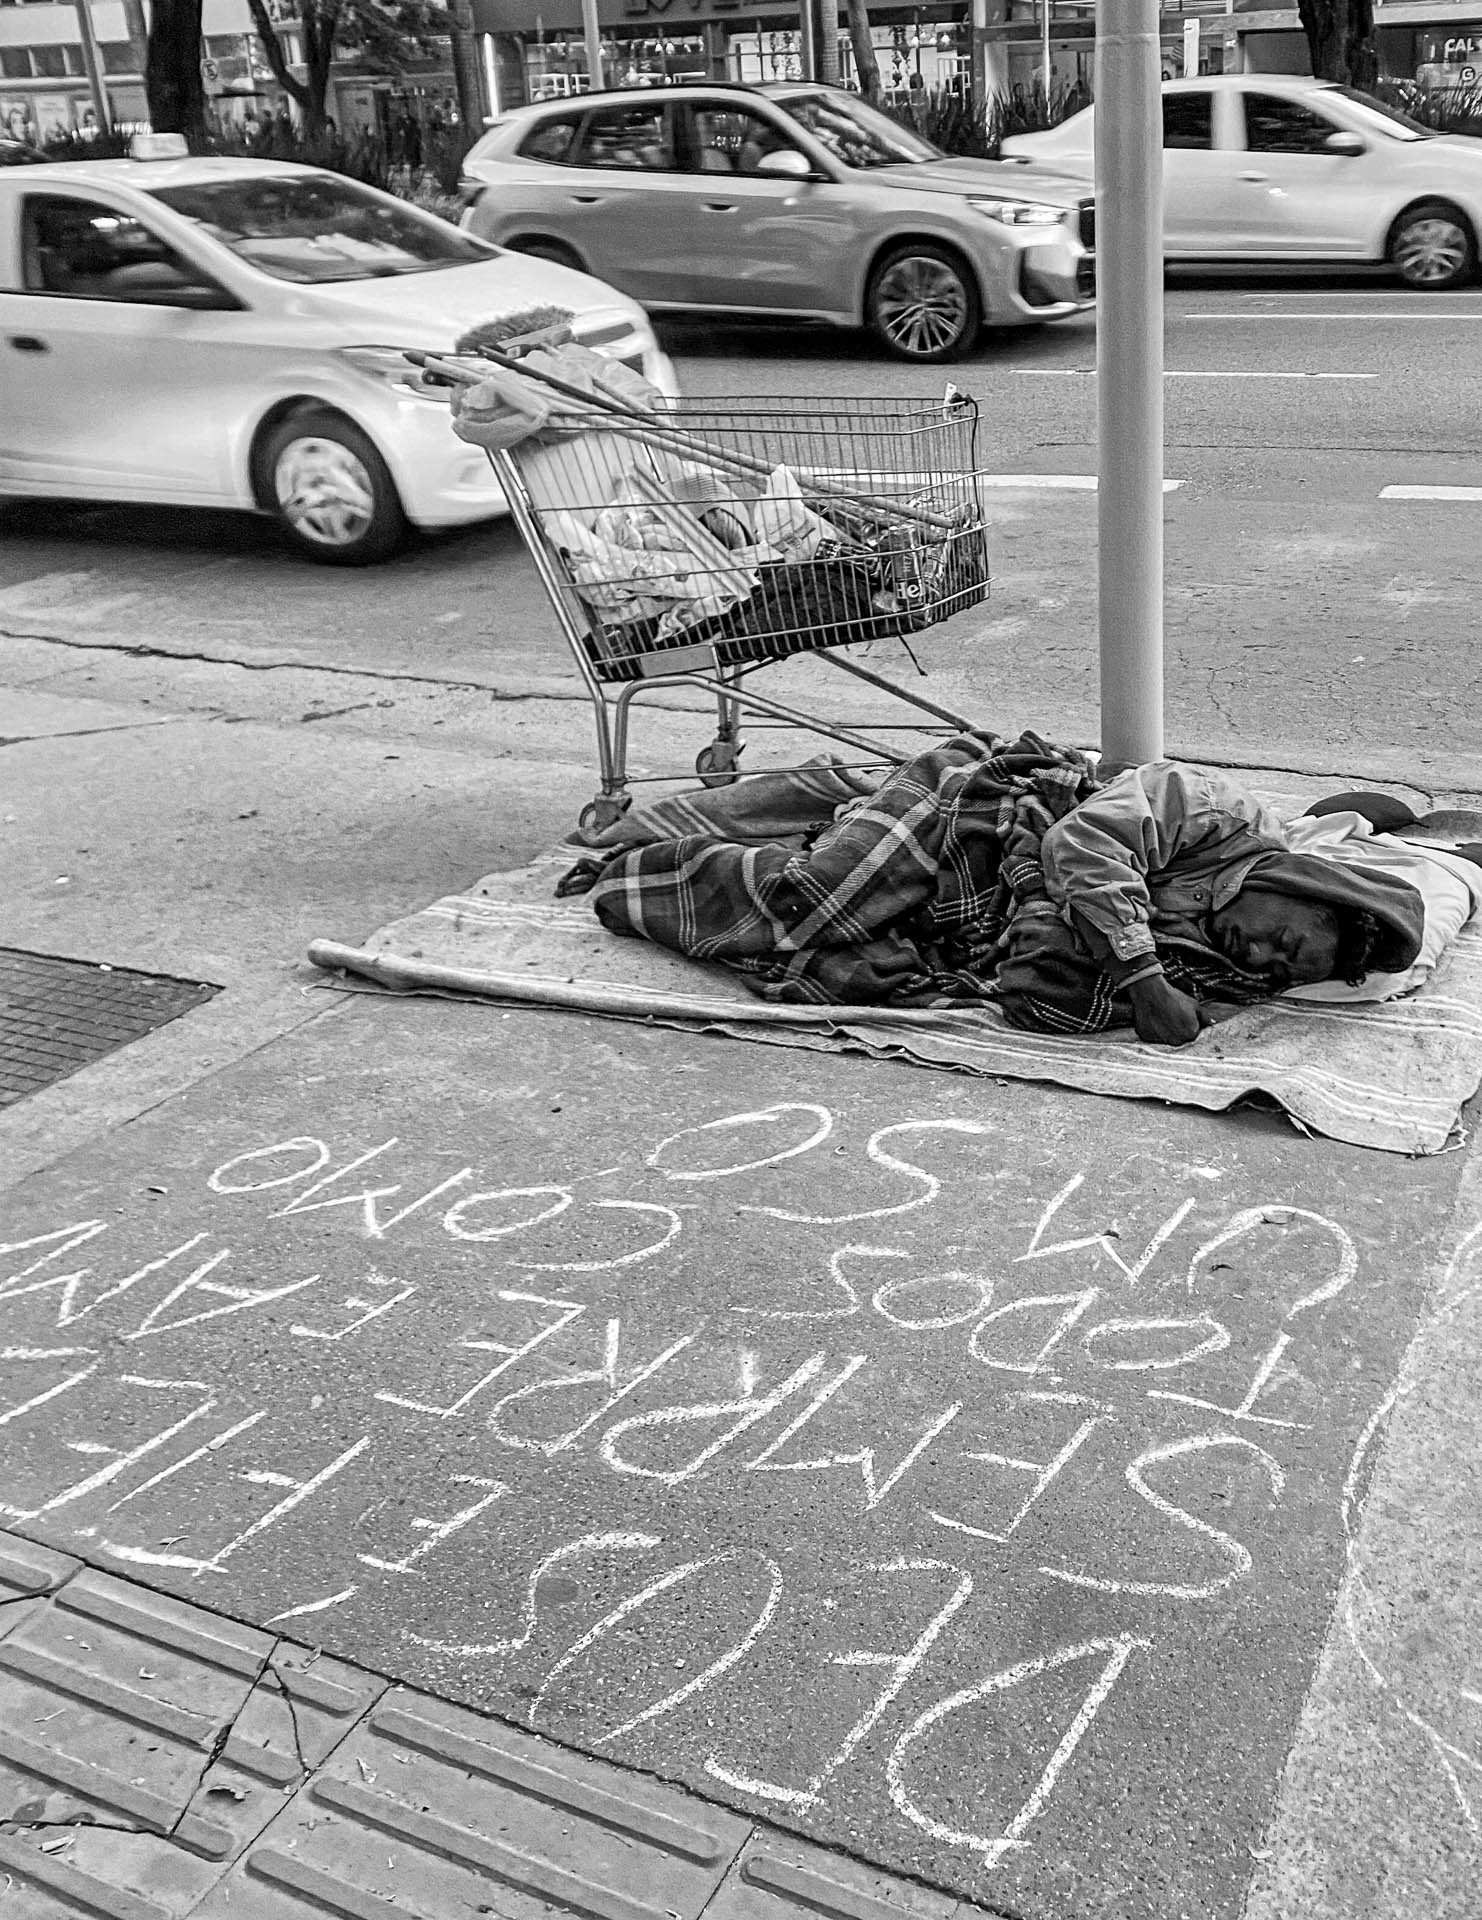 DEUS É FIEL
SEMPRE FAM
TODOS COMO
UM SO
CAL